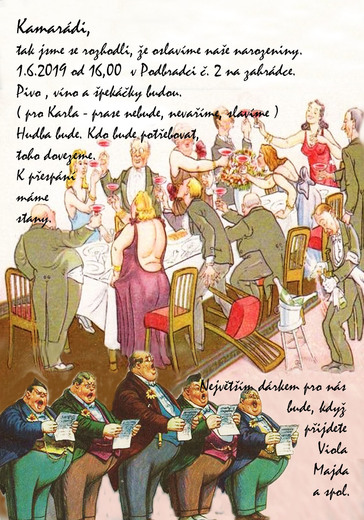 Kamarádi,
tak jsme se rozhodli, že oslavíme naše narozeniny.
1.6.2019 od 16,00 v Podbradci č. 2 na zahrádce.
Pivo , víno a špekáčky budou.
( pro Karla - prase nebude, nevaříme, slavíme )
Hudba bude. Kdo bude potřebovat,
toho dovezeme.
K přespání
máme
stany.
Největším dárkem pro nás
bude, když
přijdete
Viola
Majda
a spol.